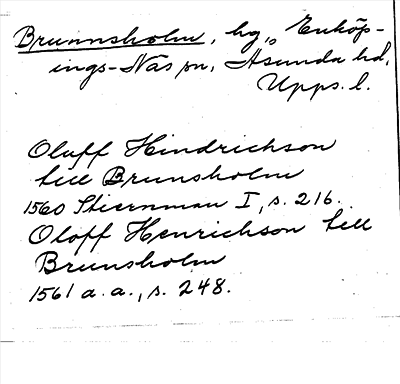 Brunnsholm, hg., Enköp-
ings-Näs sn, Åsunda hd,
Upps. l.
Oluff Hindrichson
till Brunsholm
1560 Stiernman I, s. 216.
Oloff Henrichson till
Brunsholm
1561 a. a., s. 248.